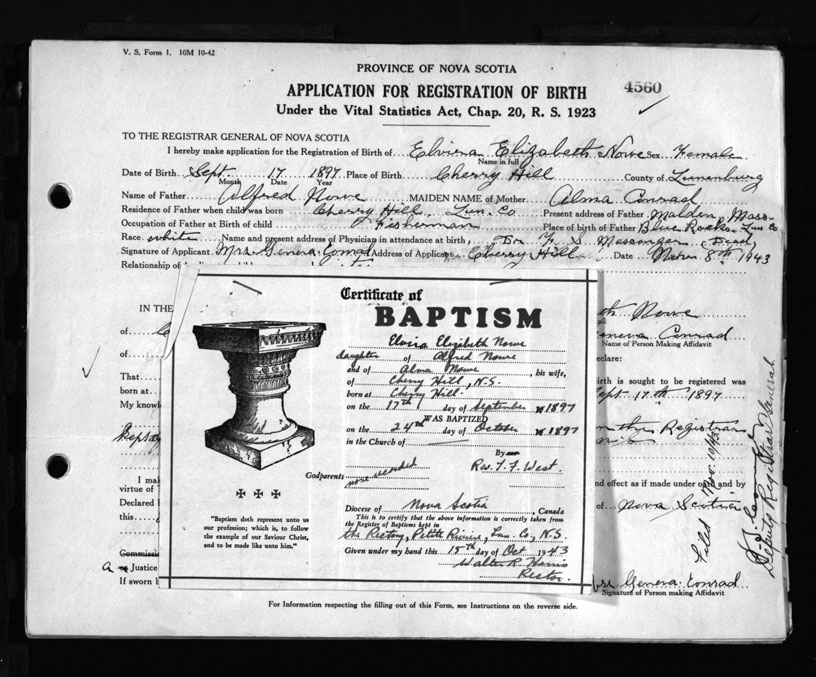 V. S. Form 1. 10M 10-42
PROVINCE OF NOVA SCOTIA
APPLICATION FOR REGISTRATION OF BIRTH
4560
Under the Vital Statistics Act, Chap. 20, R. S. 1923
TO THE REGISTRAR GENERAL OF NOVA SCOTIA
I hereby make application for the Registration of Birth of Elvira Elizabeth Nowe Sex Female
Name in full
Date of Birth Sept. 17 1897 Place of Birth Cherry Hill County of Lunenburg
Month Date Year
Name of Father Alfred Nowe MAIDEN NAME of Mother Alma Conrad
Residence of Father when child was born Cherry Hill, Lun. Co Present address of Father Malden, Mass.
Occupation of Father at Birth of child Fisherman Place of birth of Father Blue Rocks, Lun Co
Race white Name and present address of Physician in attendance at birth, Dr. F. S. Messenger (Dead)
Signature of Applicant Mrs. Geneva Conrad Address of Applicant Cherry Hill Date Nov. 8th 1943
Relationship of
IN THE
of
of
That
born at
My knowl
I mak
virtue of
Declared
this
Commissio
a Justice
If sworn b
Certificate of
BAPTISM
Elvira Elizabeth Nowe
daughter of Alfred Nowe
and of Alma Nowe, his wife,
of Cherry Hill, N.S.
born at Cherry Hill
on the 17th day of September 1897
WAS BAPTIZED
on the 24th day of October 1897
in the Church of
By
Rev. T. F. West.
Godparents none recorded
Diocese of Nova Scotia, Canada
This is to certify that the above information is correctly taken from
the Register of Baptisms kept in
the Rectory, Petite Riviere, Lun. Co., N.S.
Given under my hand this 15th day of Oct 1943
Walter R. Harris
Rector
"Baptism doth represent unto us
our profession; which is, to follow
the example of our Saviour Christ,
and to be made like unto him."
Nowe
Geneva Conrad
Name of Person Making Affidavit
declare:
irth is sought to be registered was
Sept. 17th 1897
Registrar
and effect as if made under oath and by
of Nova Scotia
Geneva Conrad
Signature of Person making Affidavit
Filed Nov. 19/43
Deputy Registrar General
For Information respecting the filling out of this Form, see Instructions on the reverse side.